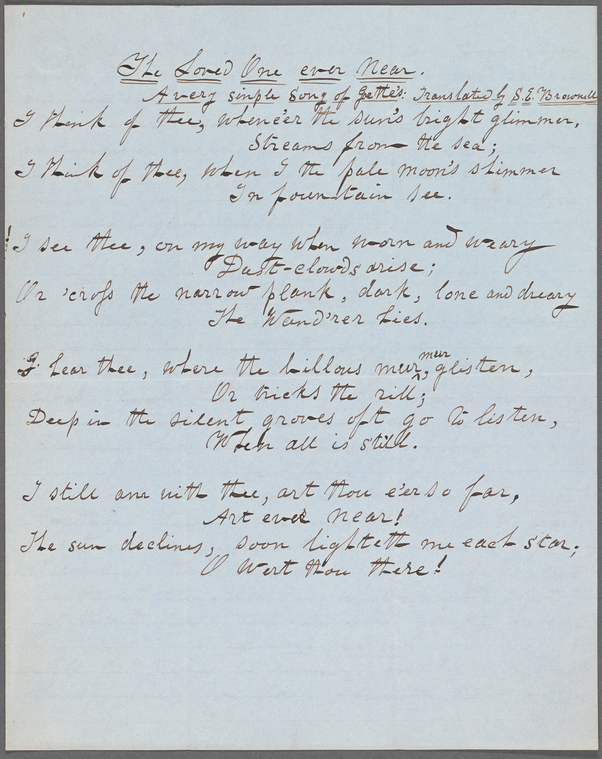 The Loved One ever Near.
A very simple Song of Gethe's: Translated by S. E. Brownell
I think of thee, whene'er the sun's bright glimmer,
Streams from the sea;
I think of thee, when I the pale moon's shimmer
In fountain see.
I see thee, on my way when worn and weary
Dust-clowds arise;
Or 'cross the narrow plank, dark, lone and dreary
The Wand'rer hies.
I hear thee, where the billows mur, mur glisten,
Or tricks the rill;
Deep in the silent groves oft go to listen,
When all is still.
I still am with thee, art thou e'er so far,
Art ever near!
The sun declines, soon lighteth me each star;
O Wert thou there!